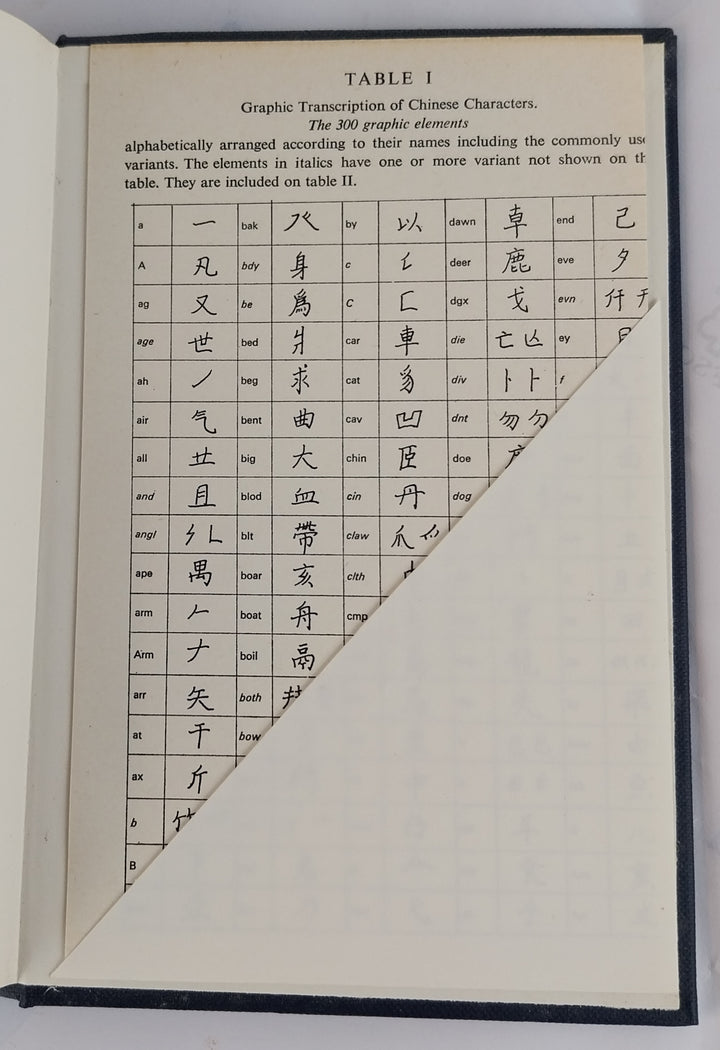 TABLE I
Graphic Transcription of Chinese Characters.
The 300 graphic elements
alphabetically arranged according to their names including the commonly
variants. The elements in italics have one or more variant not shown on
table. They are included on table II.
a 一 bak by 以 dawn 卓 end 己
A 凡 bdy 身 c deer 鹿 eve 夕
ag 又 be 爲 C 匚 dgx 戈 evn 仟
age 世 bed 爿 car 車 die 亡 ey
ah 丿 beg 求 cat 豸 div 卜 f
air 气 bent 曲 cav 凹 dnt 勿 勿
all 龷 big 大 chin 臣 doe
and 且 blod 血 cin 丹 dog
angl blt 帶 claw 爪
ape 禺 boar 亥 clth
arm 𠂉 boat 舟 cmp
Arm 𠂇 boil 鬲
arr 矢 both
at 干 bow
ax 斤
b
B